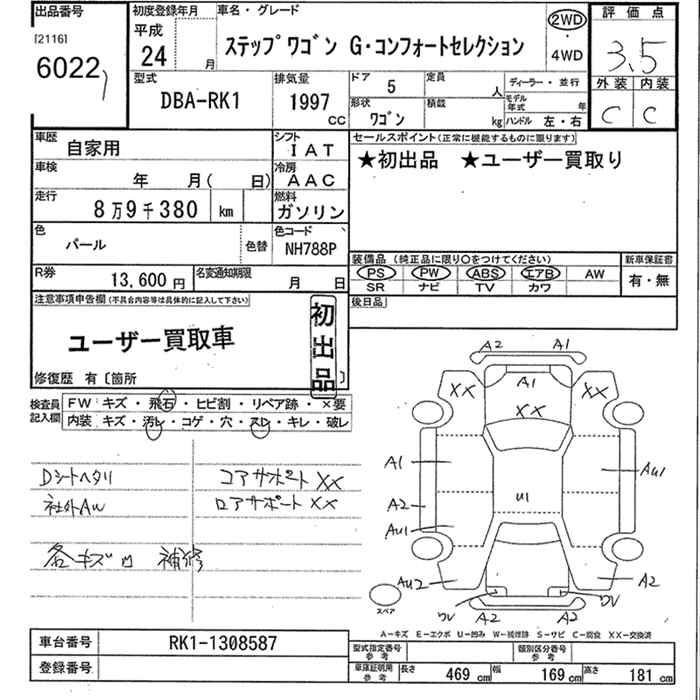 出品番号
[2116]
6022
初度登録年月
平成
24 月
車名・グレード
ステップワゴン G・コンフォートセレクション
2WD
・
4WD
評価点
3.5
外装 内装
C C
型式
DBA-RK1
排気量
1997
CC
ドア 5
定員 人
ディーラー・並行
形状
ワゴン
積載 kg
モデル年式 年
ハンドル 左・右
車歴
自家用
シフト
IAT
車検
年 月( 日)
冷房
AAC
走行
8万9千380 km
燃料
ガソリン
色
パール
色替
色コード
NH788P
R券
13,600円
名変通知期限
月 日
セールスポイント(正常に機能するものに限ります)
★初出品 ★ユーザー買取り
装備品 (純正品に限り○をつけてください)
PS PW ABS エアB AW
SR ナビ TV カワ
新車保証書
有・無
後日品
注意事項申告欄(不具合内容等は具体的に記入して下さい)
ユーザー買取車
初出品
修復歴 有〔箇所 〕
検査員記入欄
FW キズ・飛石・ヒビ割・リペア跡・×要
内装 キズ・汚レ・コゲ・穴・スレ・キレ・破レ
Dシートヘタリ
社外AW
各キズ凹 補修
コアサポート XX
ロアサポート XX
A2 A1
A1
XX XX XX
A1
A2
AU1
U1
AU1
AU2
A2
A2 A2
スペア
A−キズ E−エクボ U−凹み W−補修跡 S−サビ C−腐食 XX−交換済
車台番号
RK1-1308587
登録番号
型式指定番号
参考
類別区分番号
参考
車庫証明用
参考
長さ 469 cm 幅 169 cm 高さ 181 cm